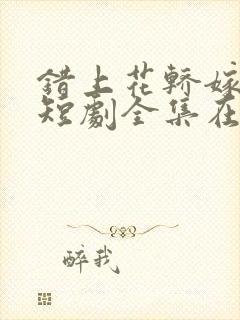 错上花轿嫁
短劇全集在
醉我